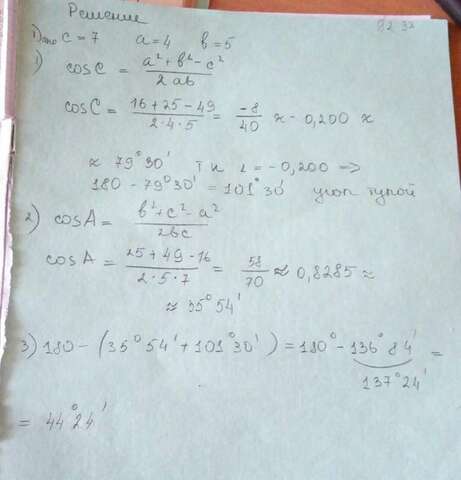 Решение
1) Дано c = 7 a = 4 b = 5
1) cos C = a² + b² - c² / 2ab
cos C = 16 + 25 - 49 / 2·4·5 = -8 / 40 ≈ - 0,200 ≈
≈ 79°30' т к = - 0,200 =>
180 - 79°30' = 101°30' угол тупой
2) cos A = b² + c² - a² / 2bc
cos A = 25 + 49 - 16 / 2·5·7 = 58 / 70 ≈ 0,8285 ≈
≈ 35°54'
3) 180 - (35°54' + 101°30') = 180° - 136°84' =
137°24'
= 44°24'